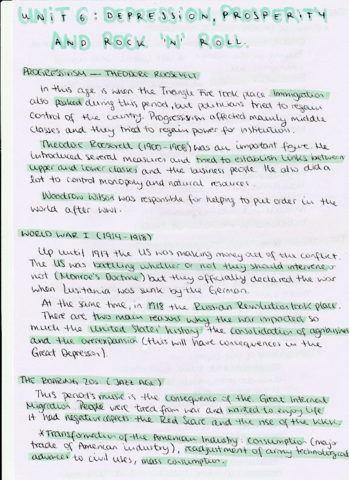 UNIT 6: DEPRESSION, PROSPERITY
AND ROCK 'N' ROLL.
PROGRESSIVISM — THEODORE ROOSEVELT
In this age is when the Triangle Fire took place. Immigration
also peaked during this period, but politicians tried to regain
control of the country. Progressivism affected mainly middle
classes and they tried to regain power for institution.
Theodore Roosevelt (1900-1908) was an important figure. He
introduced several measures and tried to establish links between
upper and lower classes and the business people. He also did a
lot to control monopoly and natural resources.
Woodrow Wilson was responsible for helping to put order in the
world after WWI.
WORLD WAR I (1914-1918)
Up until 1917 the US was making money out of this conflict.
The US was battling whether or not they should intervene or
not (Monroe's Doctrine) but they officially declared the war
when Lusitania was sunk by the German.
At the same time, in 1918 the Russian Revolution took place.
There are two main reasons why the war impacted so
much the United States' history: the consolidation of agriculture
and the overexpansion (this will have consequences in the
Great Depression).
THE ROARING 20s (JAZZ AGE)
This period's music is the consequence of the Great Internal
Migration. People were tired from war and wanted to enjoy life.
It had negative aspects: the Red Scare and the rise of the KKK.
* Transformation of the American Industry: consumption (major
trade of American industry), readjustment of army technological
advances to civil uses, mass consumption.